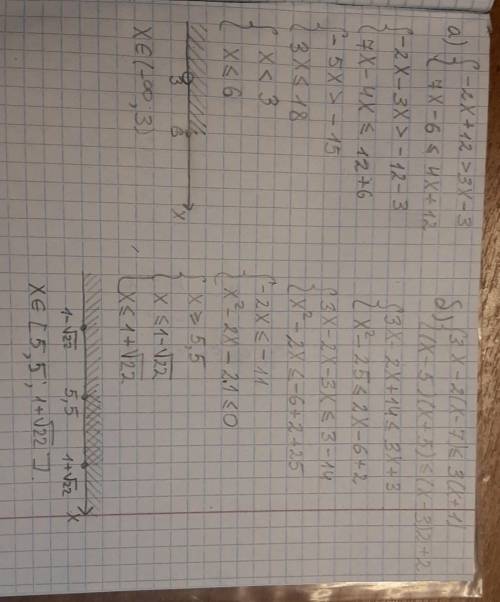 а) { -2x+12 > 3x-3
{ 7x-6 ≤ 4x+12
{ -2x-3x > -12-3
{ 7x-4x ≤ 12+6
{ -5x > -15
{ 3x ≤ 18
{ x < 3
{ x ≤ 6
3 6 x
x∈(-∞; 3)
б) { 3x-2(x-7) ≤ 3(x+1)
{ (x-5)(x+5) ≤ (x-3)2+2
{ 3x-2x+14 ≤ 3x+3
{ x²-25 ≤ 2x-6+2
{ 3x-2x-3x ≤ 3-14
{ x²-2x ≤ -6+2+25
{ -2x ≤ -11
{ x²-2x-21 ≤ 0
{ x ≥ 5,5
{ x ≤ 1-√22
{ x ≤ 1+√22
1-√22 5,5 1+√22 x
x∈[5,5; 1+√22].